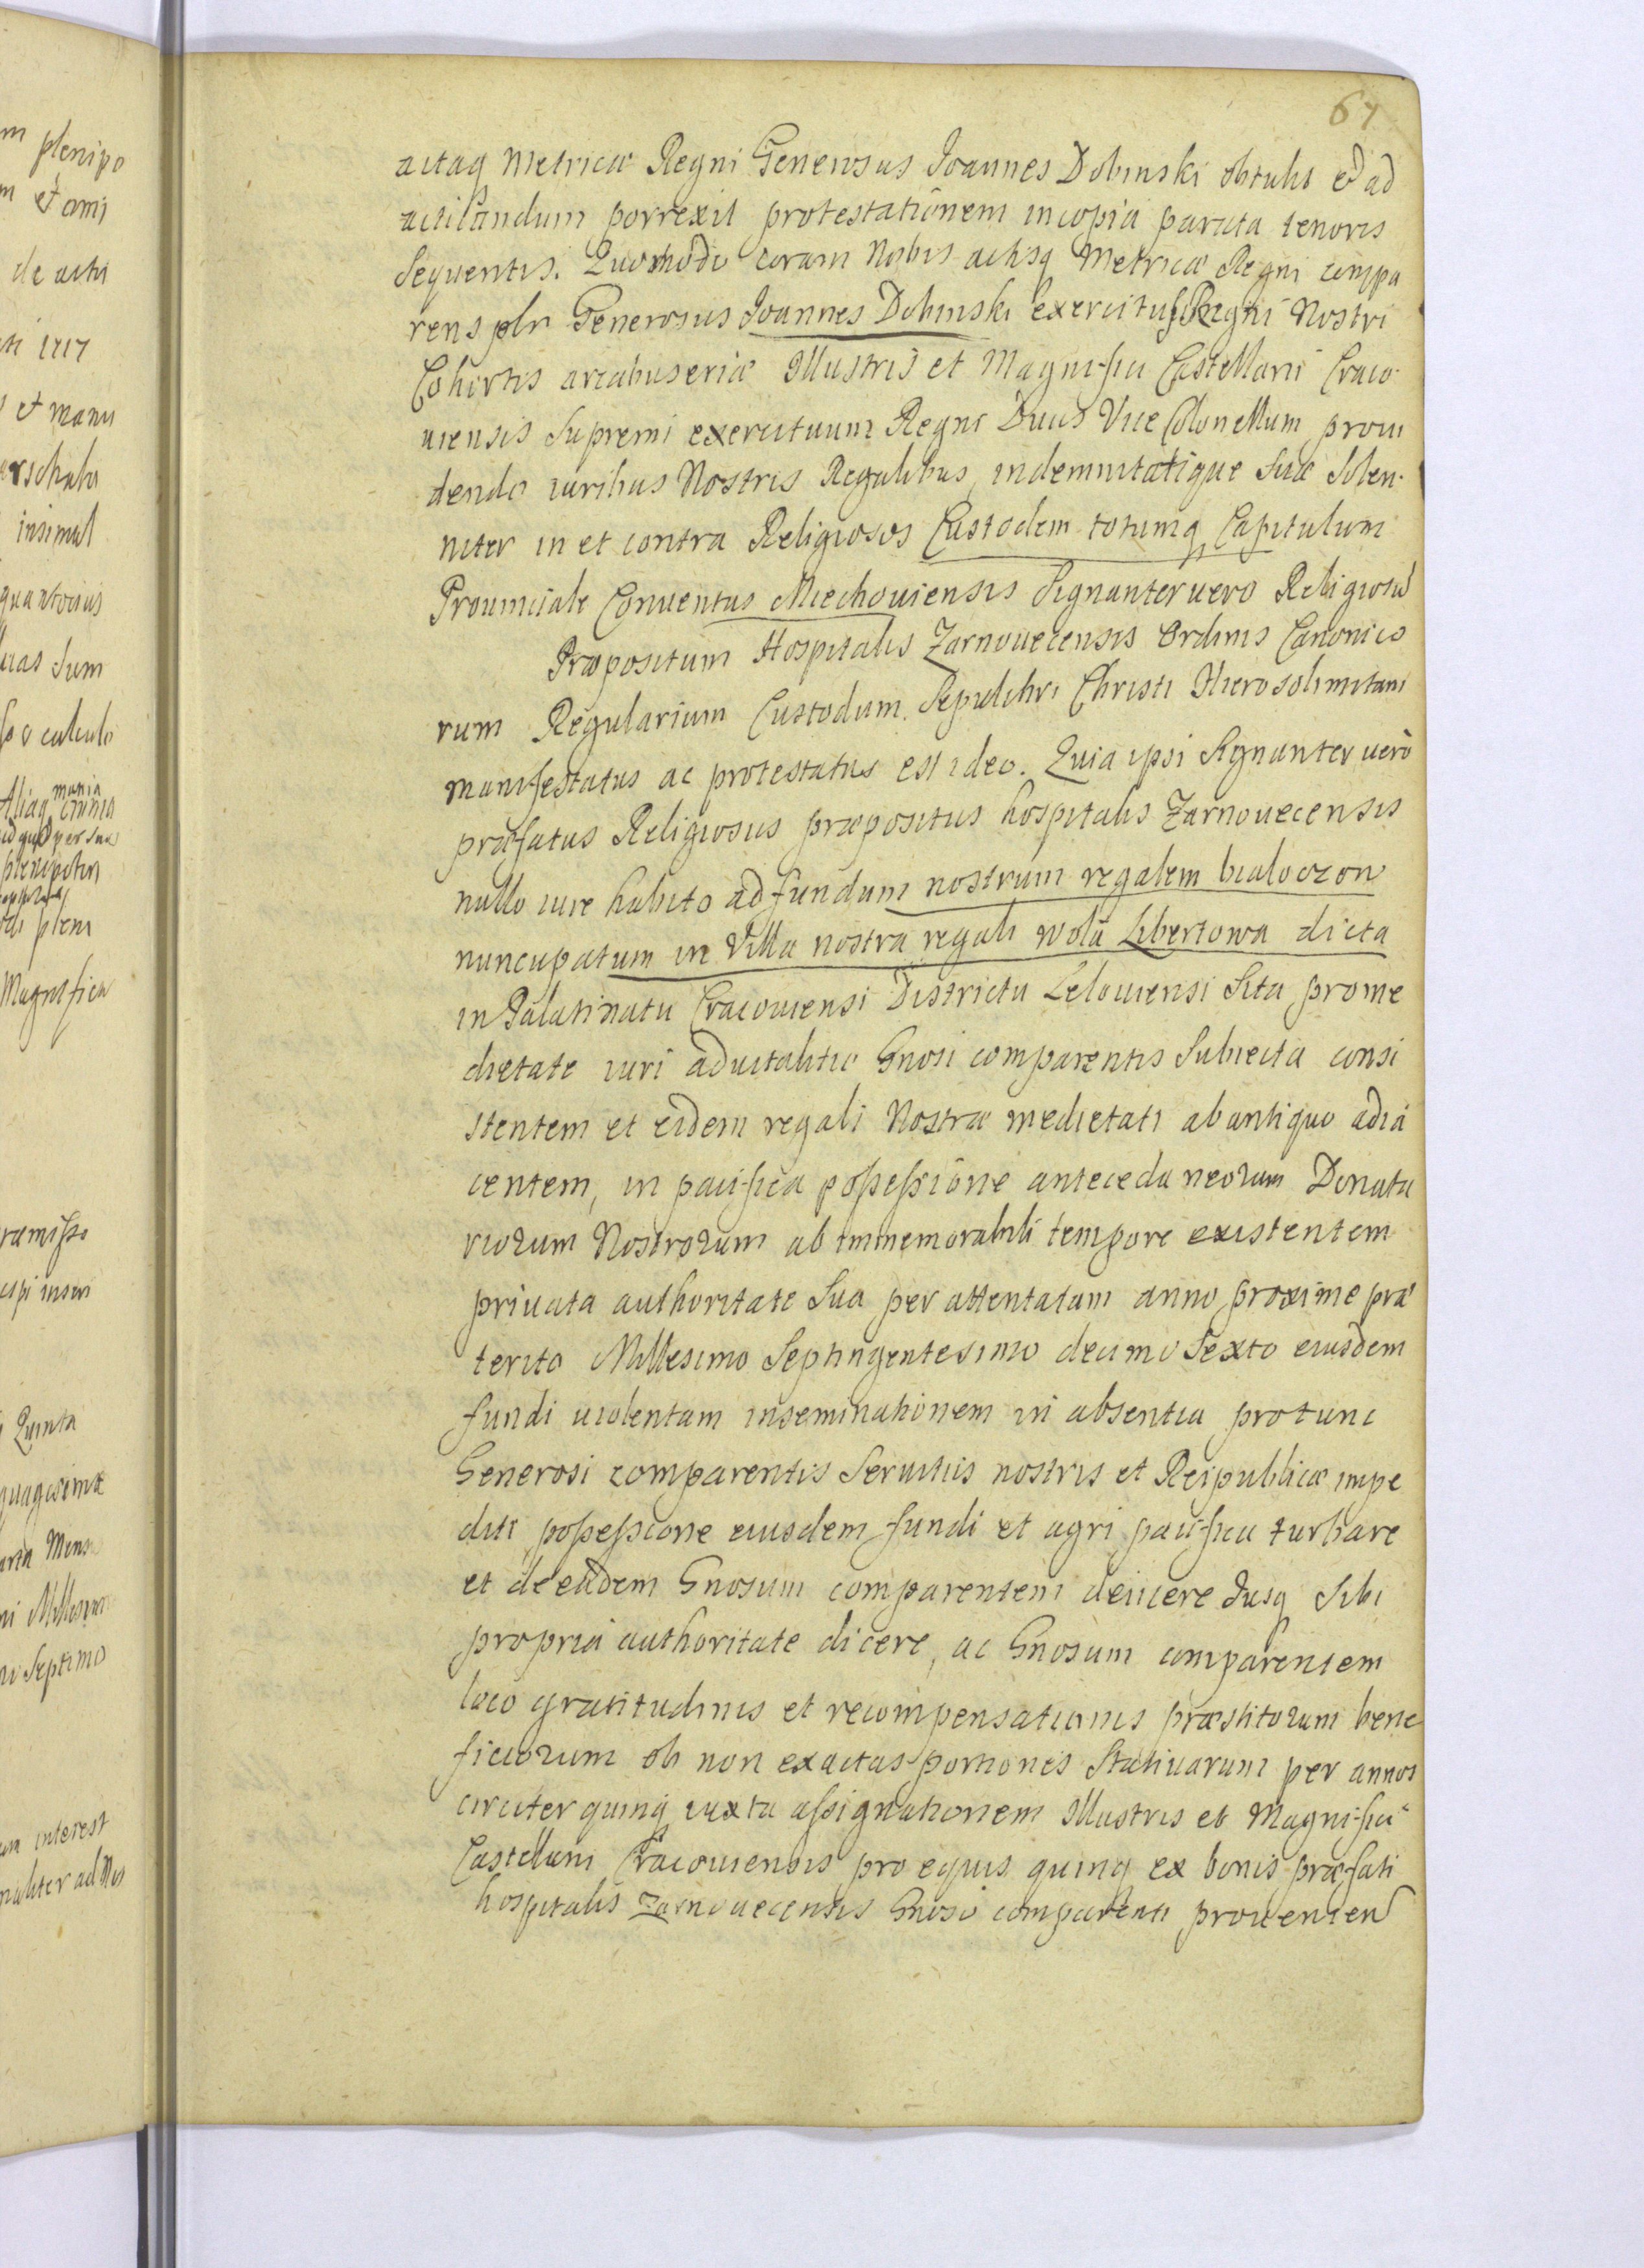 67
actaq Metricæ Regni Generosus Joannes Dobinski obtulit et ad
acticandum porrexit protestationem in copia parata tenoris
sequentis. Quomodo coram Nobis actisq Metricæ Regni compa
rens plr Generosus Joannes Dobinski exercitus Regni Nostri
Cohortis arcabuseriæ Illustris et Magnifici Castellani Craco-
uiensis Supremi exercituum Regni Ducis Vice Colonellum proui
dendo iuribus Nostris Regalibus, indemnitatique suæ solen-
niter in et contra Religiosos Custodem totumq Capitulum
Prouinciale Conuentus Miechouiensis signanter uero Religiosū
Præpositum Hospitalis Zarnouecensis Ordinis Canonico
rum Regularium Custodum Sepulchri Christi Hierosolimitani
manifestatus ac protestatus est ideo. Quia ipsi signanter uerò
præfatus Religiosus præpositus hospitalis Zarnouecensis
nullo iure habito ad fundum nostrum regalem bialoczon
nuncupatum in Villa nostra regali wola Libertowa dicta
in Palatinatu Cracouiensi Districtu Lelouiensi sita pro me
dietate iuri aduitalitio Gnosi comparentis subiecta consi
stentem et eidem regali Nostræ medietati ab antiquo adia
centem, in pacifica possessione antecedaneorum Donata
riorum Nostrorum ab immemorabili tempore existentem
priuata authoritate sua per attentatam anno proxime præ
terito Millesimo Septingentesimo decimo sexto eiusdem
fundi uiolentam inseminationem in absentia pro tunc
Generosi comparentis seruitiis nostris et Reipublicæ impe
diti possessione eiusdem fundi et agri pacifica turbare
et de eadem Gnosum comparentem deiicere Jusq sibi
propria authoritate dicere, ac Gnosum comparentem
loco gratitudinis et recompensationis præstitorum bene
ficiorum ob non exactas portiones statiuarum per annos
circiter quinq iuxta assignationem Illustris et Magnifici
Castellani Cracouiensis pro equis quinq ex bonis præfati
hospitalis Zarnouecensis Gnoso comparenti prouenien